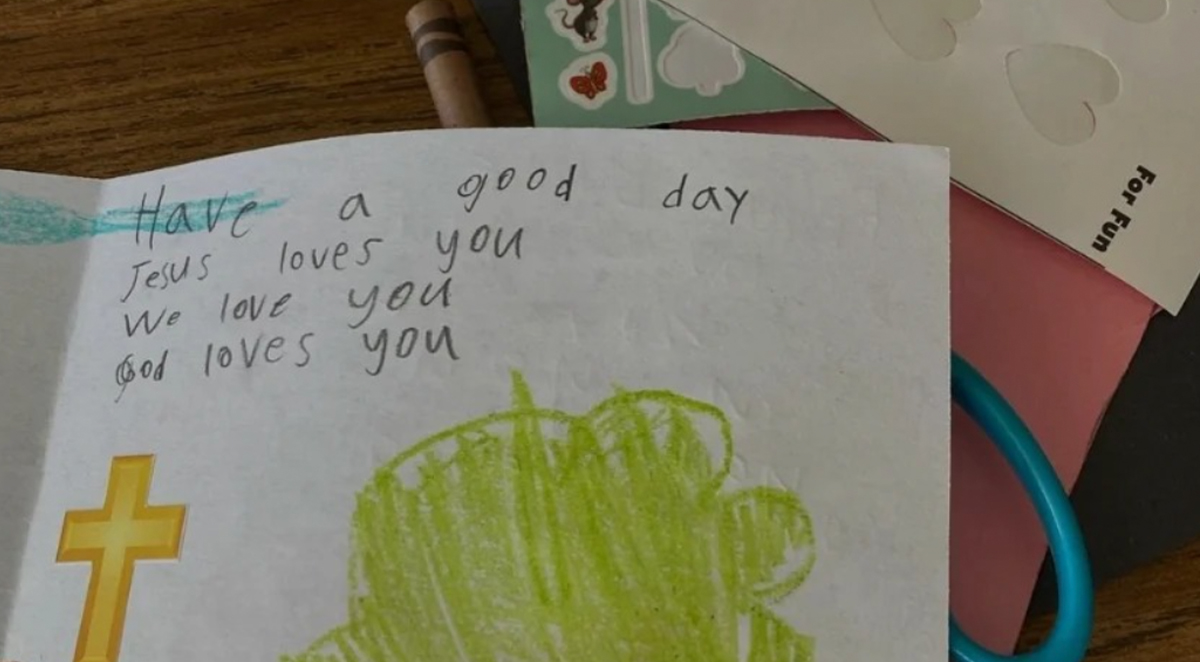 Have a good day
Jesus loves you
We love you
God loves you
For Fun